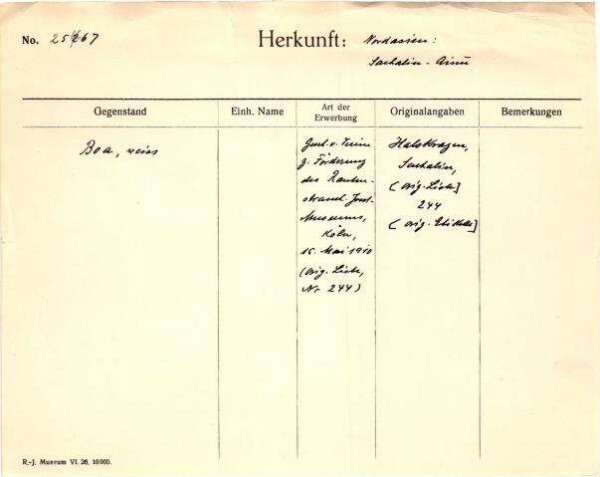 No. 25667
Herkunft: Nordasien:
Sachalin-Ainu
Gegenstand
Einh. Name
Art der
Erwerbung
Originalangaben
Bemerkungen
Boa, weiss
Gesch. v. Verein
z. Förderung
des Rauten-
strauch-Joest-
Museums,
Köln,
16. Mai 1910
(orig. Liste,
Nr. 244)
Halskragen,
Sachalin,
(orig. Liste]
244
(orig. Etikett]
R.-J. Museum VI. 26. 10000.